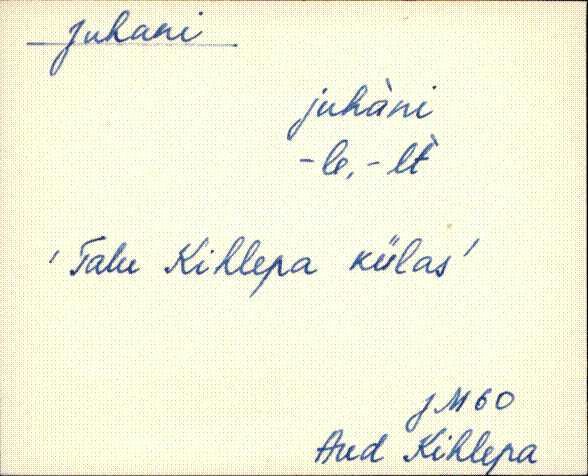 Juhani
juhàni
-le, -lt̀
'Talu Kihlepa külas'
JM60
Aud Kihlepa